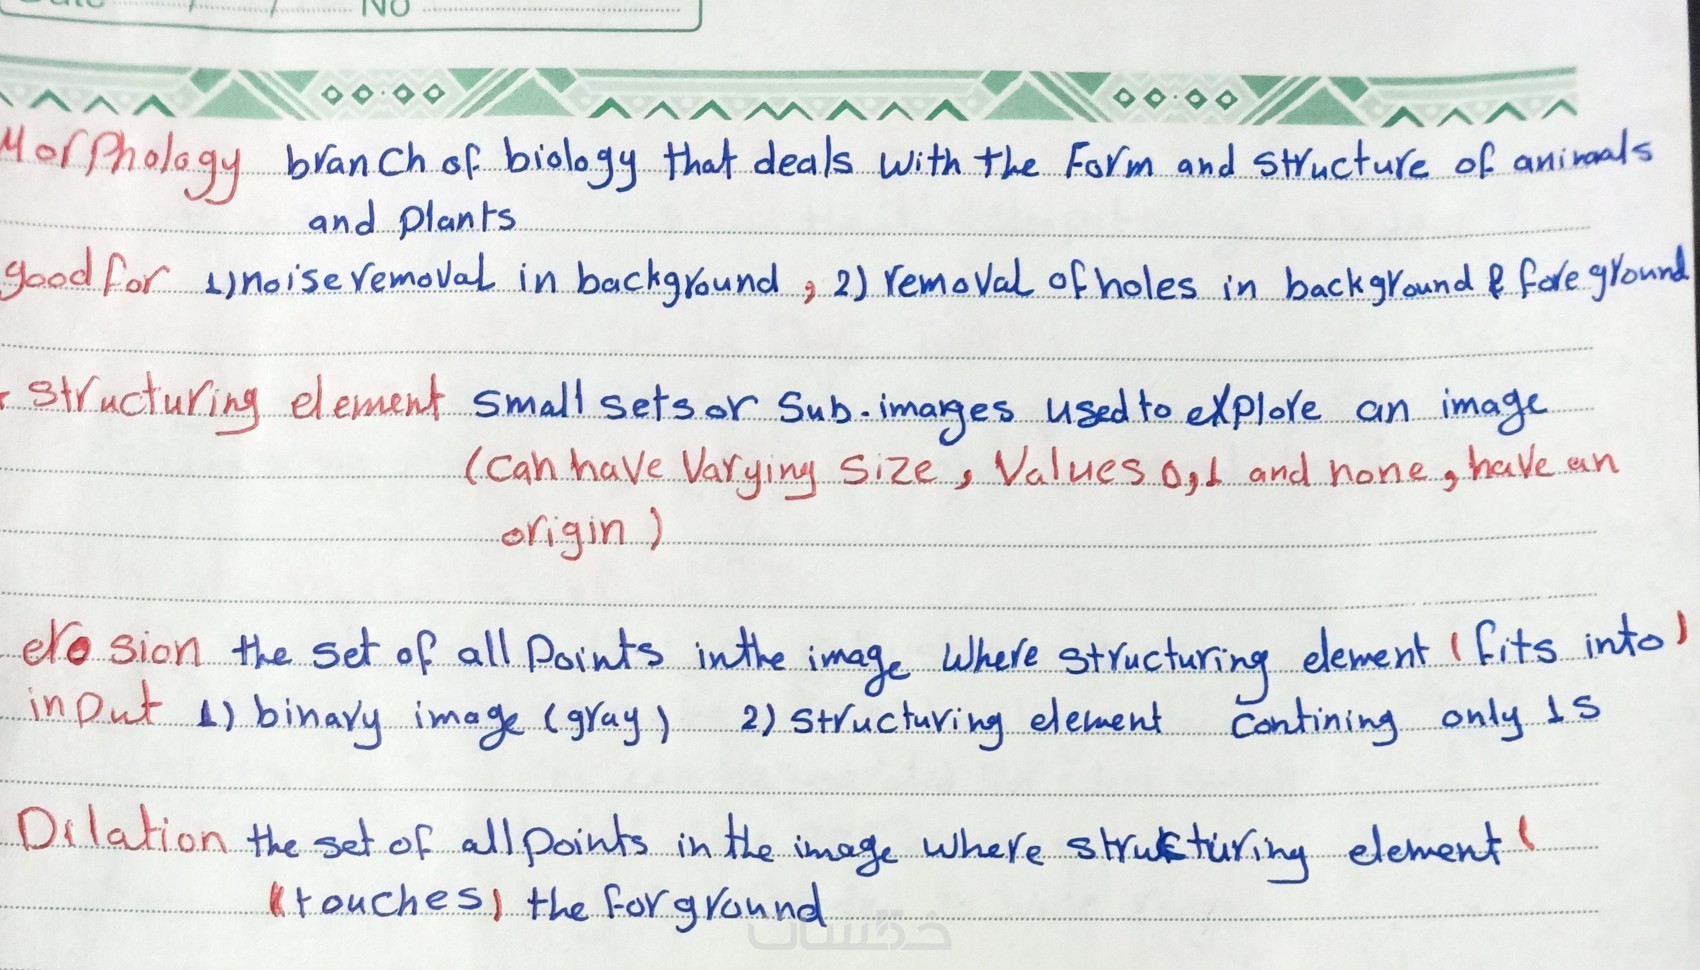 Date / / No
Morphology branch of biology that deals with the Form and structure of animals
and plants
good for 1) noise removal in background, 2) removal of holes in background & foreground
structuring element small sets or sub-images used to explore an image
(can have Varying size, Values 0,1 and none, have an
origin)
erosion the set of all points in the image where structuring element (fits into)
input 1) binary image (gray) 2) structuring element contining only 1s
Dilation the set of all points in the image where structuring element (
(touches) the forground
خمسات